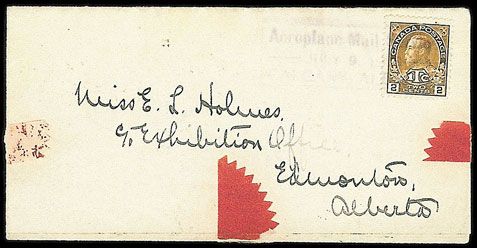 Aeroplane Mail
9
CANADA POSTAGE
1Tc
2 2
Miss E. L. Holmes,
c/o Exhibition Office.
Edmonton,
Alberta